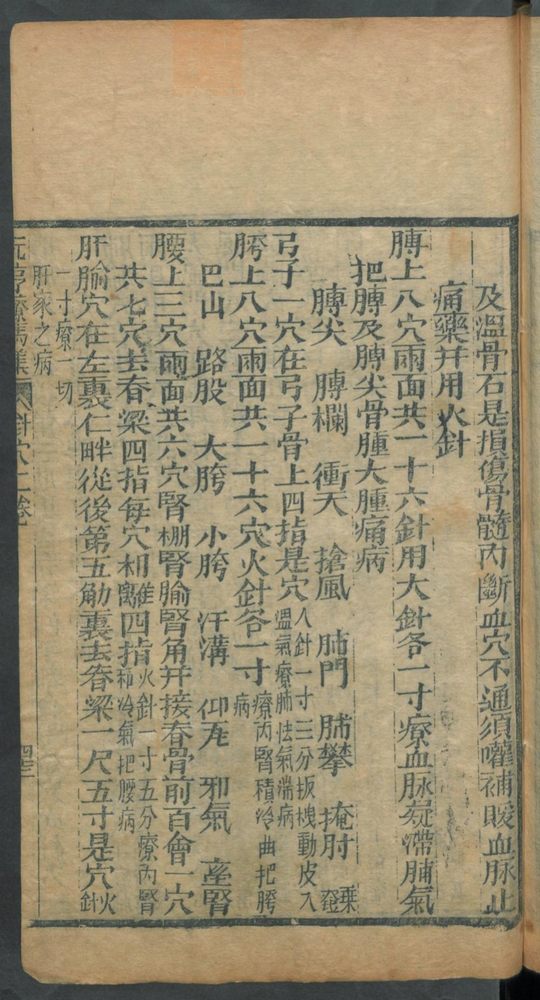 及溫骨石是損傷骨髓內斷血穴不通須囉補暖血脉止
痛藥并用火針
膊上八穴兩面共一十六針用大針各一寸療血脉凝滯脯氣
把膊及膊尖骨腫大腫痛病
膊尖　膊欄　衝天　搶風　肺門　肺攀　掩肘　乗鐙
弓子一穴在弓子骨上四指是穴 入針一寸三分扳拽動皮入
溫氣療肺怯氣湍病
胯上八穴兩面共一十六穴火針各一寸 療內腎積冷曲把胯
病
巴山　路股　大胯　小胯　汗溝　仰瓦　邪氣　產腎
腰上三穴兩面共六穴腎棚腎腧腎角并接脊骨前百會一穴
共七穴去脊梁四指每穴相離四指 火針一寸五分療內腎
冷氣把腰病
肝腧穴在左裏仁畔從後第五肋裏去脊梁一尺五寸是穴 火
針
一寸療一切
肝家之病
元亨療馬集 針穴二卷 四三